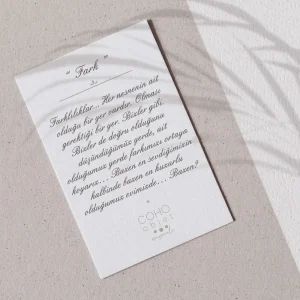 " Fark "
Farklılıklar... Her nesnenin ait
olduğu bir yer vardır. Olması
gerektiği bir yer. Bizler gibi.
Bizler de doğru olduğunu
düşündüğümüz yerde, ait
olduğumuz yerde farkımızı ortaya
koyarız... Bazen en sevdiğimizin
kalbinde bazen en huzurlu
olduğumuz evimizde... Bazen?
COHO
objet